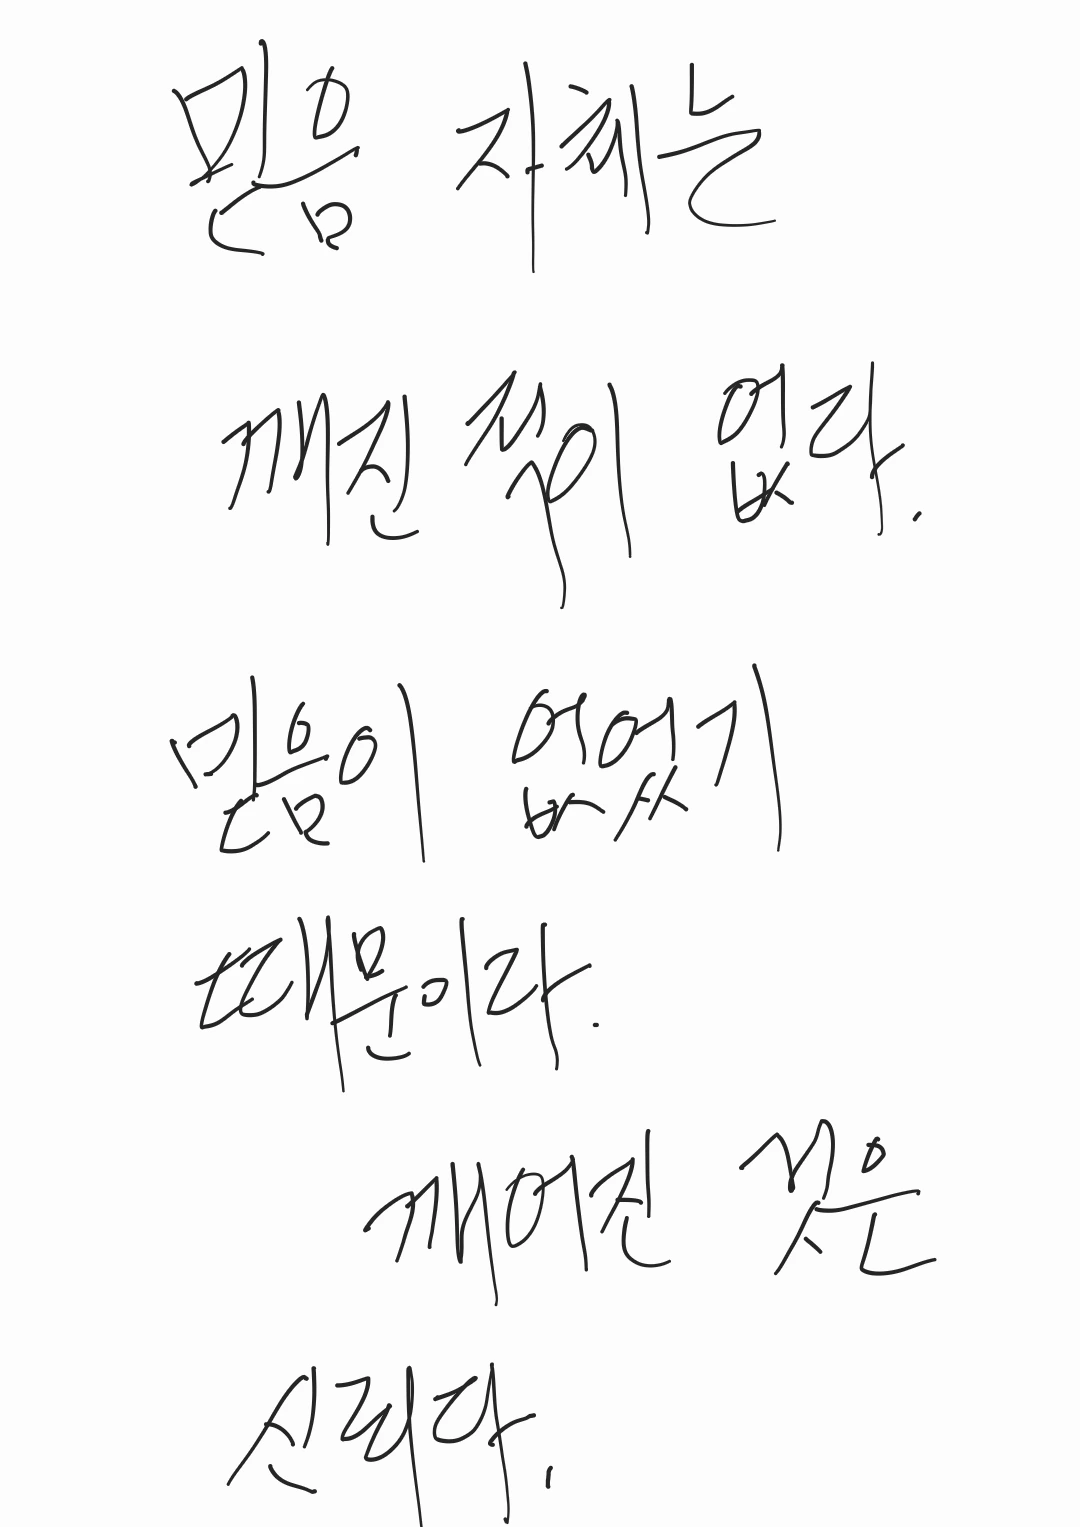 믿음 자체는
깨진 적이 없다.
믿음이 없었기
때문이라.
깨어진 것은
신뢰다.